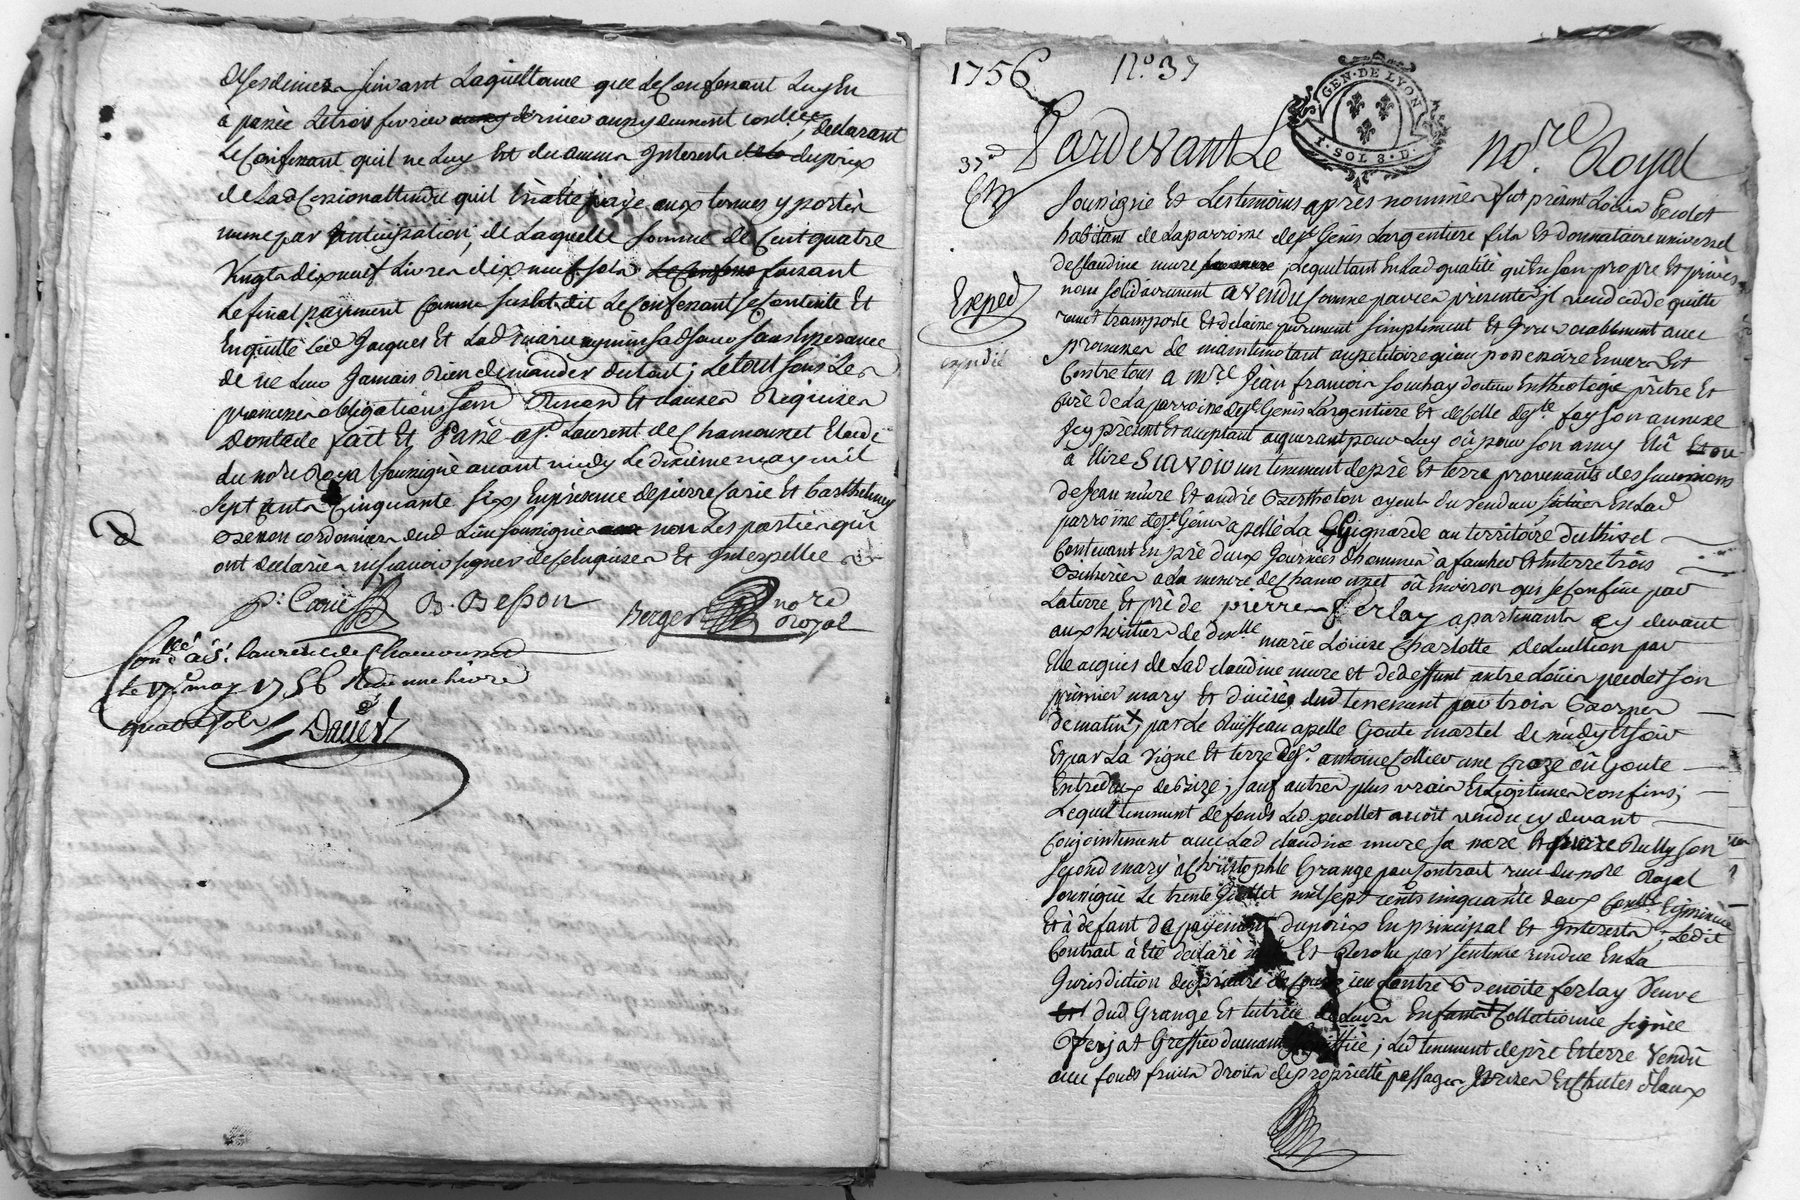 desdeniers suivant la quittance que le Confessant luy en
à passée le trois fevrier dernier aussy dument conllée, declarant
le Confessant quil ne luy est du aucun Interests du prix
de lad. Cession attendu quil à été payé aux termes y portés
meme par anticipation, de laquelle somme de Cent quatre
vingts dix neuf livres dix neuf sols faisant
le final payement comme susdit le Confessant se Contente Et
En quitte led. Jacques Et lad. marie sans Esperance
de ne leur Jamais Rien demander du tout; le tout sous les
promesses obligations Renon. Et clauses Requises
dont acte fait Et Passé a St. Laurent de Chamousset Etude
du no.re Royal soussigné avant midy le dixieme may mil
sept Cents Cinquante six En presence de pierre Carié Et Barthelemy
Besson cordonnier dud. Lieu soussignés non les parties qui
ont declarées ne scavoir signer de ce Enquises Et Interpellées
P. Carié B. Besson Berger no.re Royal
Con.llé à St. Laurent de Chamousset
le 17 may 1756 Reçu une livre
quatre sols Daved
1756 No. 37
GEN. DE LYON
1. SOL 8. D.
37e Pardevant Le no.re Royal
soussigné Et les temoins après nommés fut présent Louis Perdet
habitant de la parroisse de St. Genis Largentiere fils Et donnataire universel
de Claudine mure, lequel tant En lad. qualité qu'En son propre Et privés
Exped
expedié
nom solidairement a vendu comme par ces présentes jl vend cedde quitte
remet transporte Et delaisse purement simplement Et Irrevocablement avec
promesse de maintenir tant au petitoire qu'au possessoire Envers Et
Contre tous a M.re Jean francois Souchay docteur En theologie prêtre Et
curé de la parroisse de St. Genis Largentiere Et de celle de Ste. foy son annexe
jcy présent Et acceptant acquerant pour luy où pour son amy Elû
à Elire Scavoir un tenement de prè Et terre provenants des successions
de Jean mure Et andré Bertholon ayeul du vendeur situés En lad.
parroisse de St. Genis apellé la Guignarde au territoire du thivel
Contenant En prè deux Journées d'hommes à faucher Et En terre trois
Bicherées à la mesure de Chamousset où Environ qui se confine par
la terre Et prè de pierre Ferlay apartenants cy devant
aux heritiers de D.elle marie Louise Charlotte
Elle acquis de lad. claudine mure Et de deffunt autre Louis perdet son
premier mary Et divisés dud. tenement par trois Bornes
de matin; par le Ruisseau apelle Goute martel de midy Et soir
Et par la vigne Et terre de Sr. antoine Collier une Croze où Goute
Entredeux de Bize; sauf autres plus vrais Et Legitimes confins;
Lequel tenement de fonds led. perdet avoit vendu cy devant
Conjointement avec lad. claudine mure sa mere Et pierre Rully son
second mary à Christophle Grange par Contrat recu du no.re Royal
soussigné le trente Juillet mil sept cents cinquante deux
Et à defaut de payement du prix En principal Et Interests, ledit
Contrat à Eté declaré Et Resolu par sentence rendue En la
Jurisdiction du contre Benoite ferlay Veuve
dud. Grange Et tutrice de leurs Enfants Collationnée signée
Greffier; led. tenement de prè Et terre vendû
avec fonds fruits droits de propriété passages prises Et Chutes d'Eaux